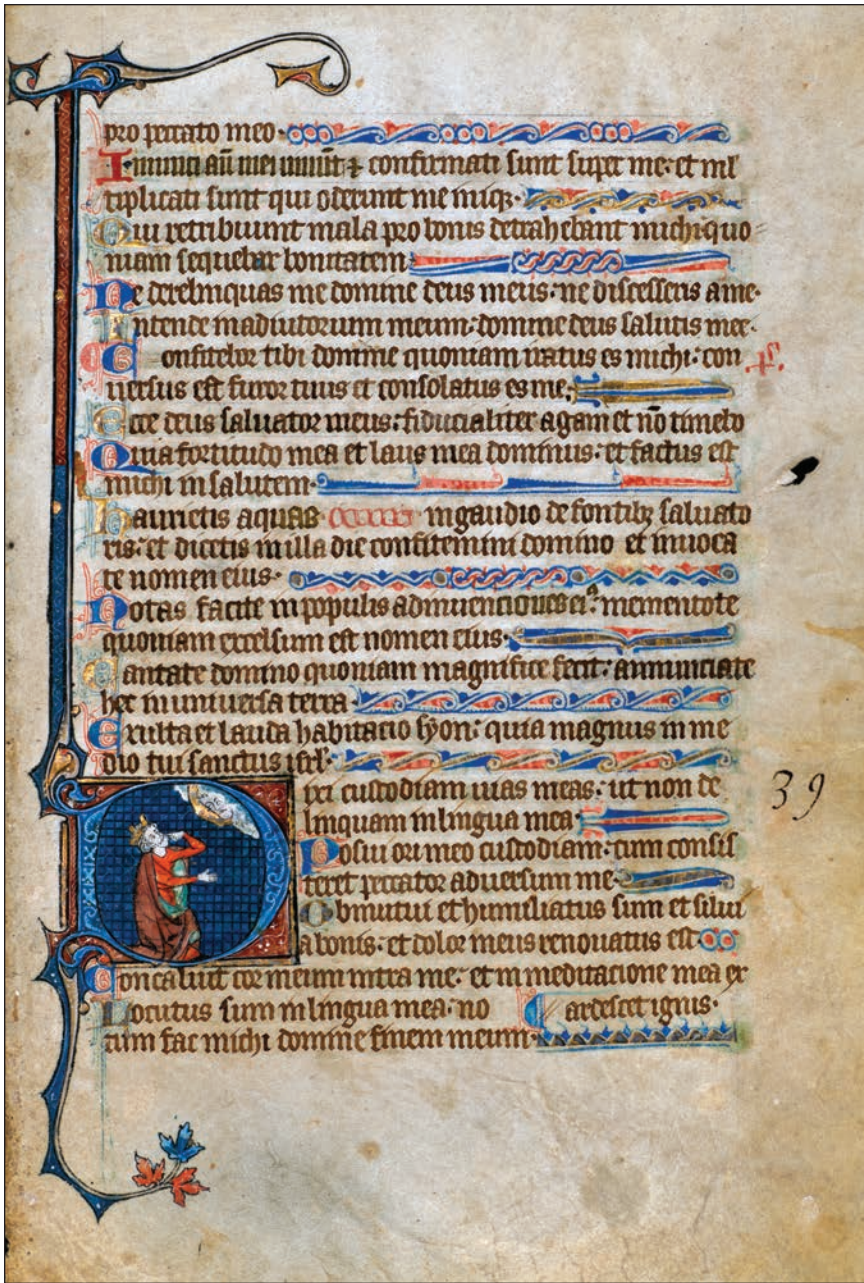 pro peccato meo·
Inimici aū mei uiuūt ⁊ confirmati sunt super me: et ml
tiplicati sunt qui oderunt me iniq̨·
Qui retribuunt mala pro bonis detrahebant michi quo
niam sequebar bonitatem·
Ne derelinquas me domine deus meus: ne discesseris a me·
Intende in adiutorium meum: domine deus salutis mee·
Confitebor tibi domine quoniam iratus es michi: con
uersus est furor tuus et consolatus es me·
Ecce deus saluator meus: fiducialiter agam et nō timebo
Quia fortitudo mea et laus mea dominus: et factus est
michi in salutem·
Haurietis aquas in gaudio de fontibꝫ saluato
ris: et dicetis in illa die confitemini domino et inuoca
te nomen eius·
Notas facite in populis adinuenciones ei᷒: mementote
quoniam excelsum est nomen eius·
Cantate domino quoniam magnifice fecit: annunciate
hec in uniuersa terra·
Exulta et lauda habitacio syon: quia magnus in me
dio tui sanctus isrl̄·
Dixi custodiam uias meas: ut non de
linquam in lingua mea·
39
Posui ori meo custodiam: cum consis
teret peccator aduersum me·
Obmutui et humiliatus sum et silui
a bonis: et dolor meus renouatus est·
Concaluit cor meum intra me: et in meditacione mea ex
Locutus sum in lingua mea: no ardescet ignis·
tum fac michi domine finem meum·